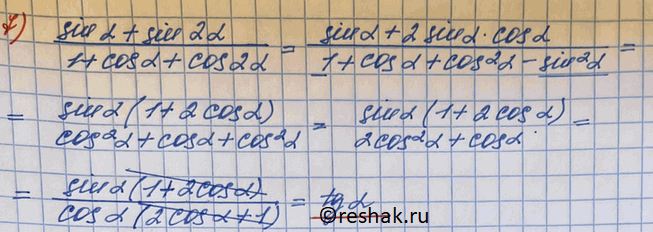 7) (sin α + sin 2α)/(1 + cos α + cos 2α) = (sin α + 2 sin α · cos α)/(1 + cos α + cos²α − sin²α) =
= (sin α (1 + 2 cos α))/(cos²α + cos α + cos²α) = (sin α (1 + 2 cos α))/(2cos²α + cos α) =
= (sin α (1 + 2cos α))/(cos α (2 cos α + 1)) = tg α
©reshak.ru